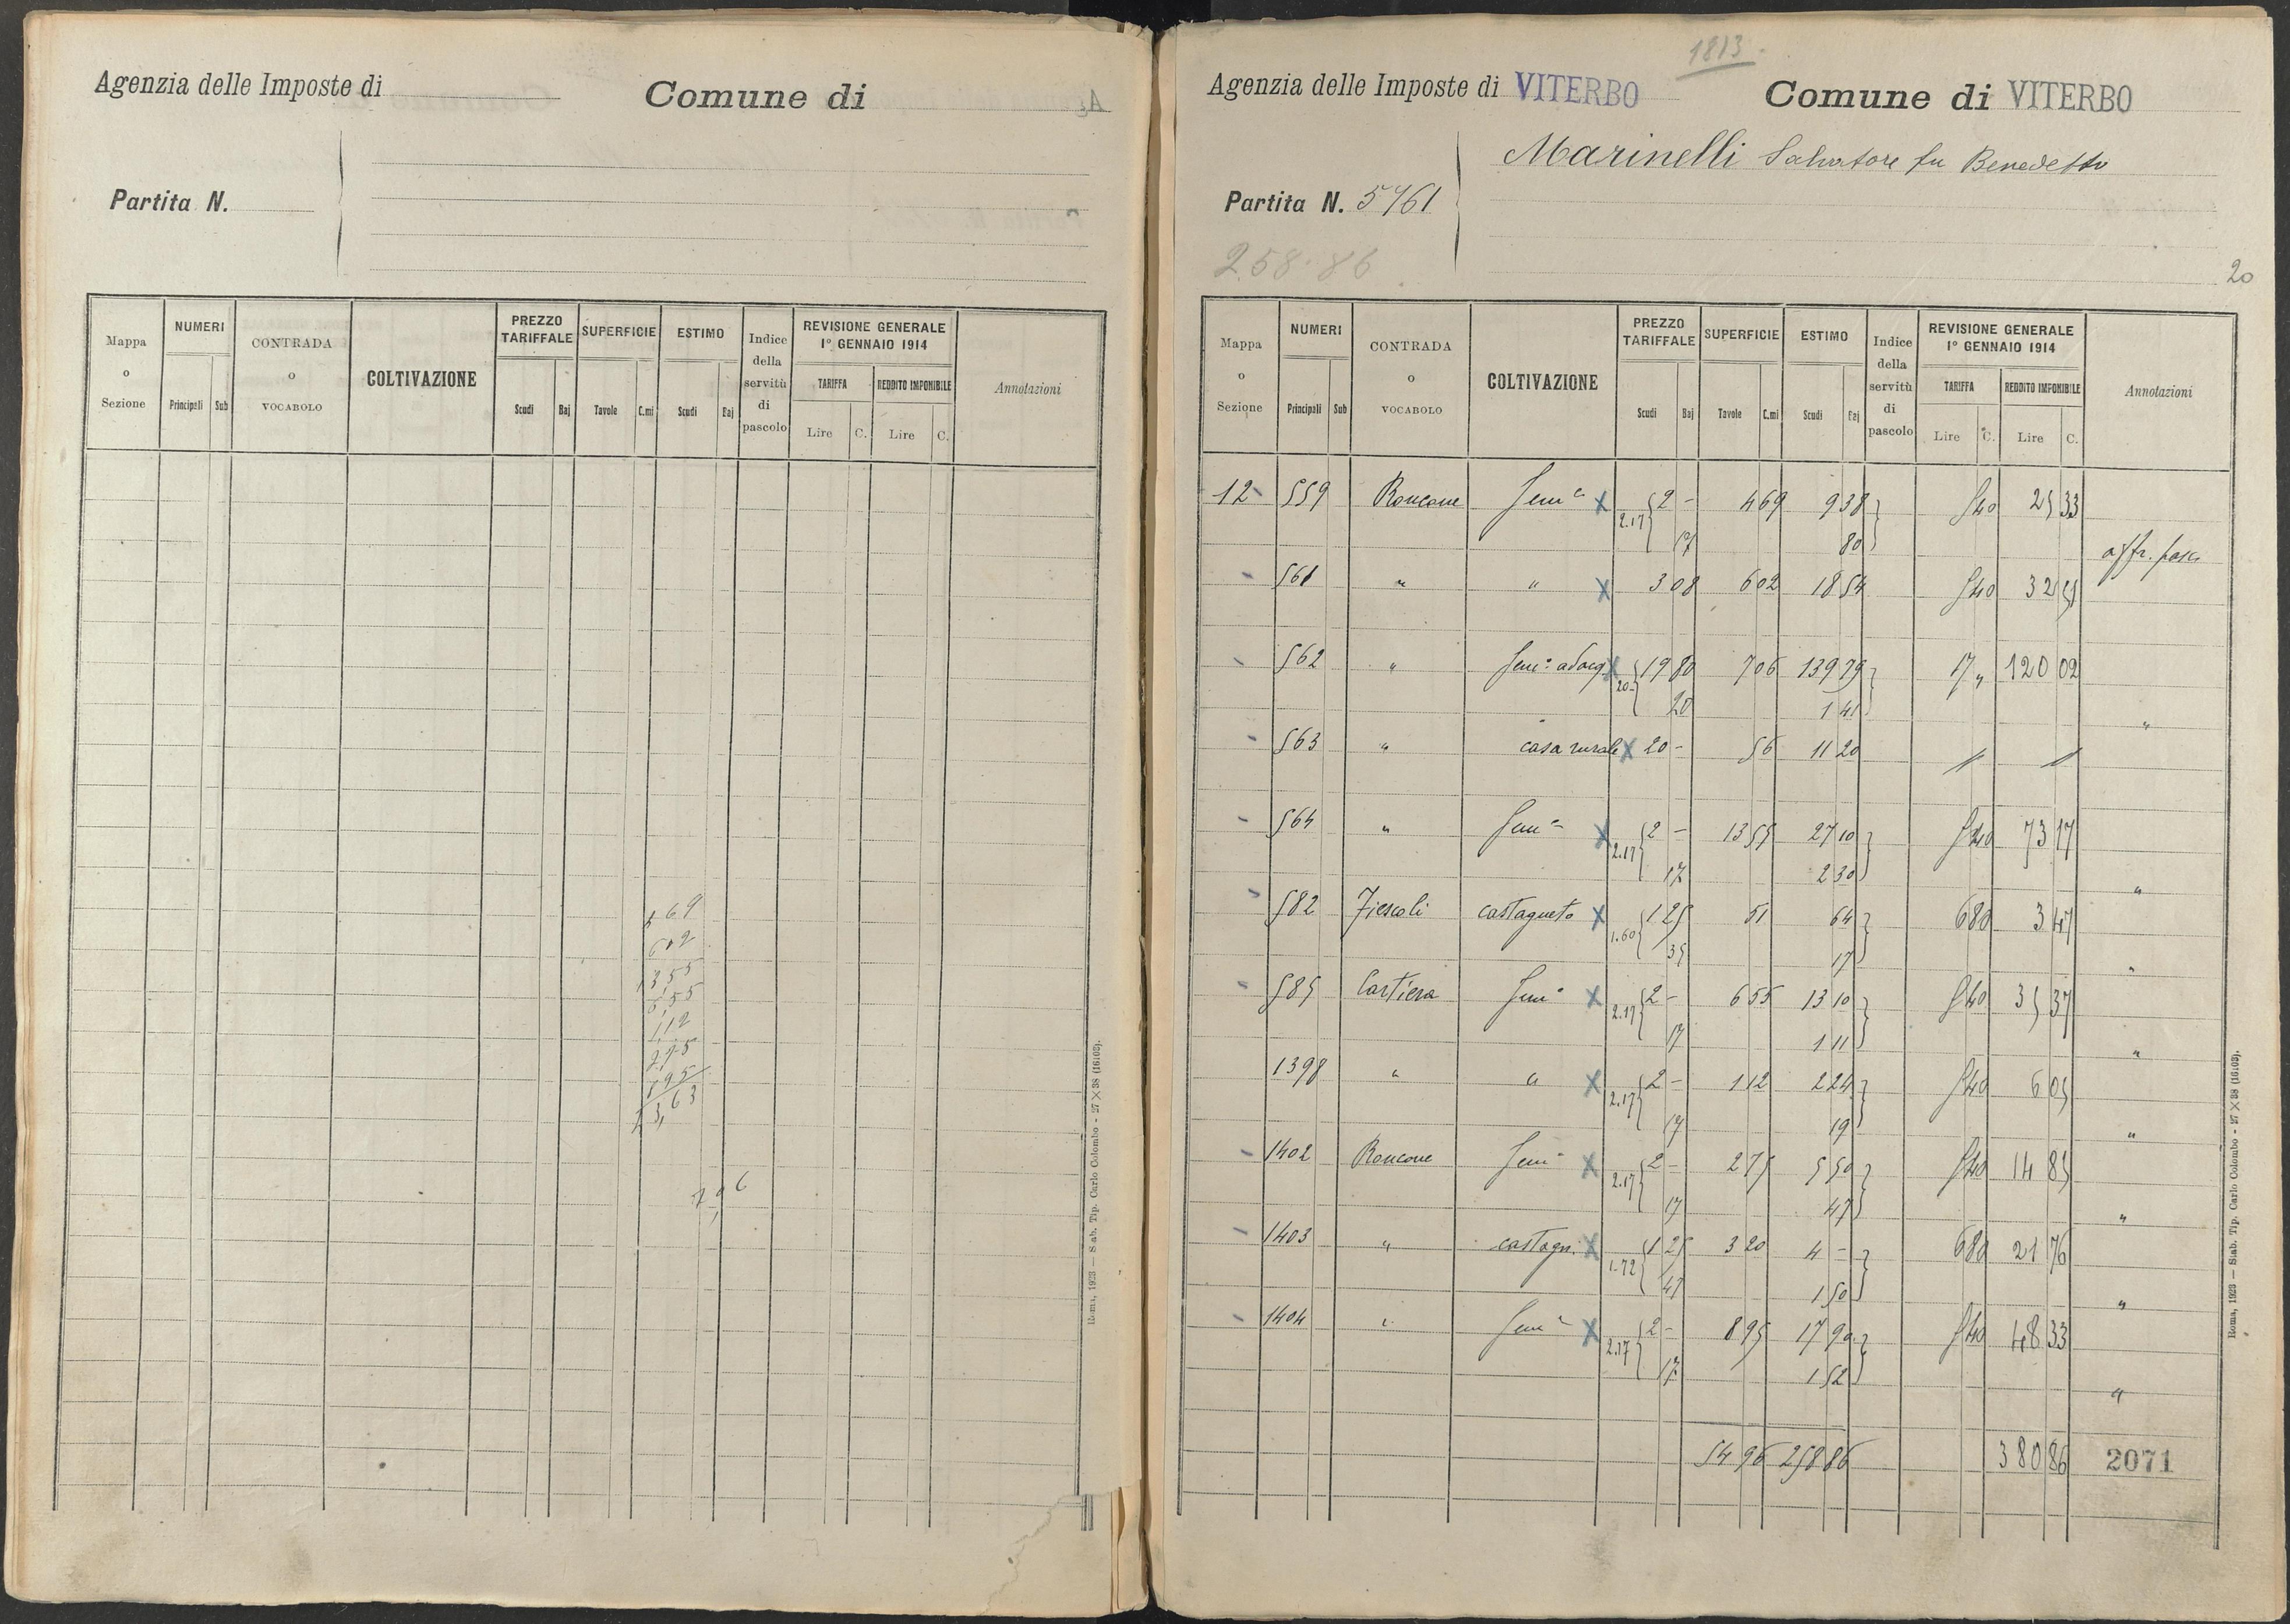 Agenzia delle Imposte di
Comune di
Partita N.
Mappa o Sezione
NUMERI
Principali Sub
CONTRADA o VOCABOLO
COLTIVAZIONE
PREZZO TARIFFALE
Scudi Baj
SUPERFICIE
Tavole C.mi
ESTIMO
Scudi Baj
Indice della servitù di pascolo
REVISIONE GENERALE 1° GENNAIO 1914
TARIFFA
Lire C.
REDDITO IMPONIBILE
Lire C.
Annotazioni
469
602
1355
655
112
275
895
706
Roma, 1923 — Stab. Tip. Carlo Colombo - 27 × 38 (16103).
1813
Agenzia delle Imposte di VITERBO
Comune di VITERBO
Marinelli Salvatore fu Benedetto
Partita N. 5461
258.86
20
Mappa o Sezione
NUMERI
Principali Sub
CONTRADA o VOCABOLO
COLTIVAZIONE
PREZZO TARIFFALE
Scudi Baj
SUPERFICIE
Tavole C.mi
ESTIMO
Scudi Baj
Indice della servitù di pascolo
REVISIONE GENERALE 1° GENNAIO 1914
TARIFFA
Lire C.
REDDITO IMPONIBILE
Lire C.
Annotazioni
12 559 Roncone Sem.o X 2.17 { 2 - 4 69 9 38 } 5 40 25 33
17 80 affr. pasc.
561 " " X 3 08 6 02 18 54 5 40 32 51
562 " Sem.o adacq. X 20- { 19 80 7 06 139 79 } 17 " 120 02
20 1 41 "
563 " casa rurale X 20 - 56 11 20 // //
564 " Sem.o X 2.17 { 2 - 13 55 27 10 } 5 40 73 17
17 2 30 "
582 Fiescoli castagneto X 1.60 { 1 25 51 64 } 6 80 3 47
35 17 "
585 Cartiera Sem.o X 2.17 { 2 - 6 55 13 10 } 5 40 35 37
17 1 11 "
1398 " " X 2.17 { 2 - 1 12 2 24 } 5 40 6 05
17 19 "
1402 Roncone Sem.o X 2.17 { 2 - 2 75 5 50 } 5 40 14 85
17 47 "
1403 " castagn. X 1.72 { 1 25 3 20 4 - } 6 80 21 76
47 1 50 "
1404 " Sem.o X 2.17 { 2 - 8 95 17 90 } 5 40 48 33
17 1 52 "
54 96 258 86 380 86 2071
Roma, 1923 — Stab. Tip. Carlo Colombo - 27 × 38 (16103).